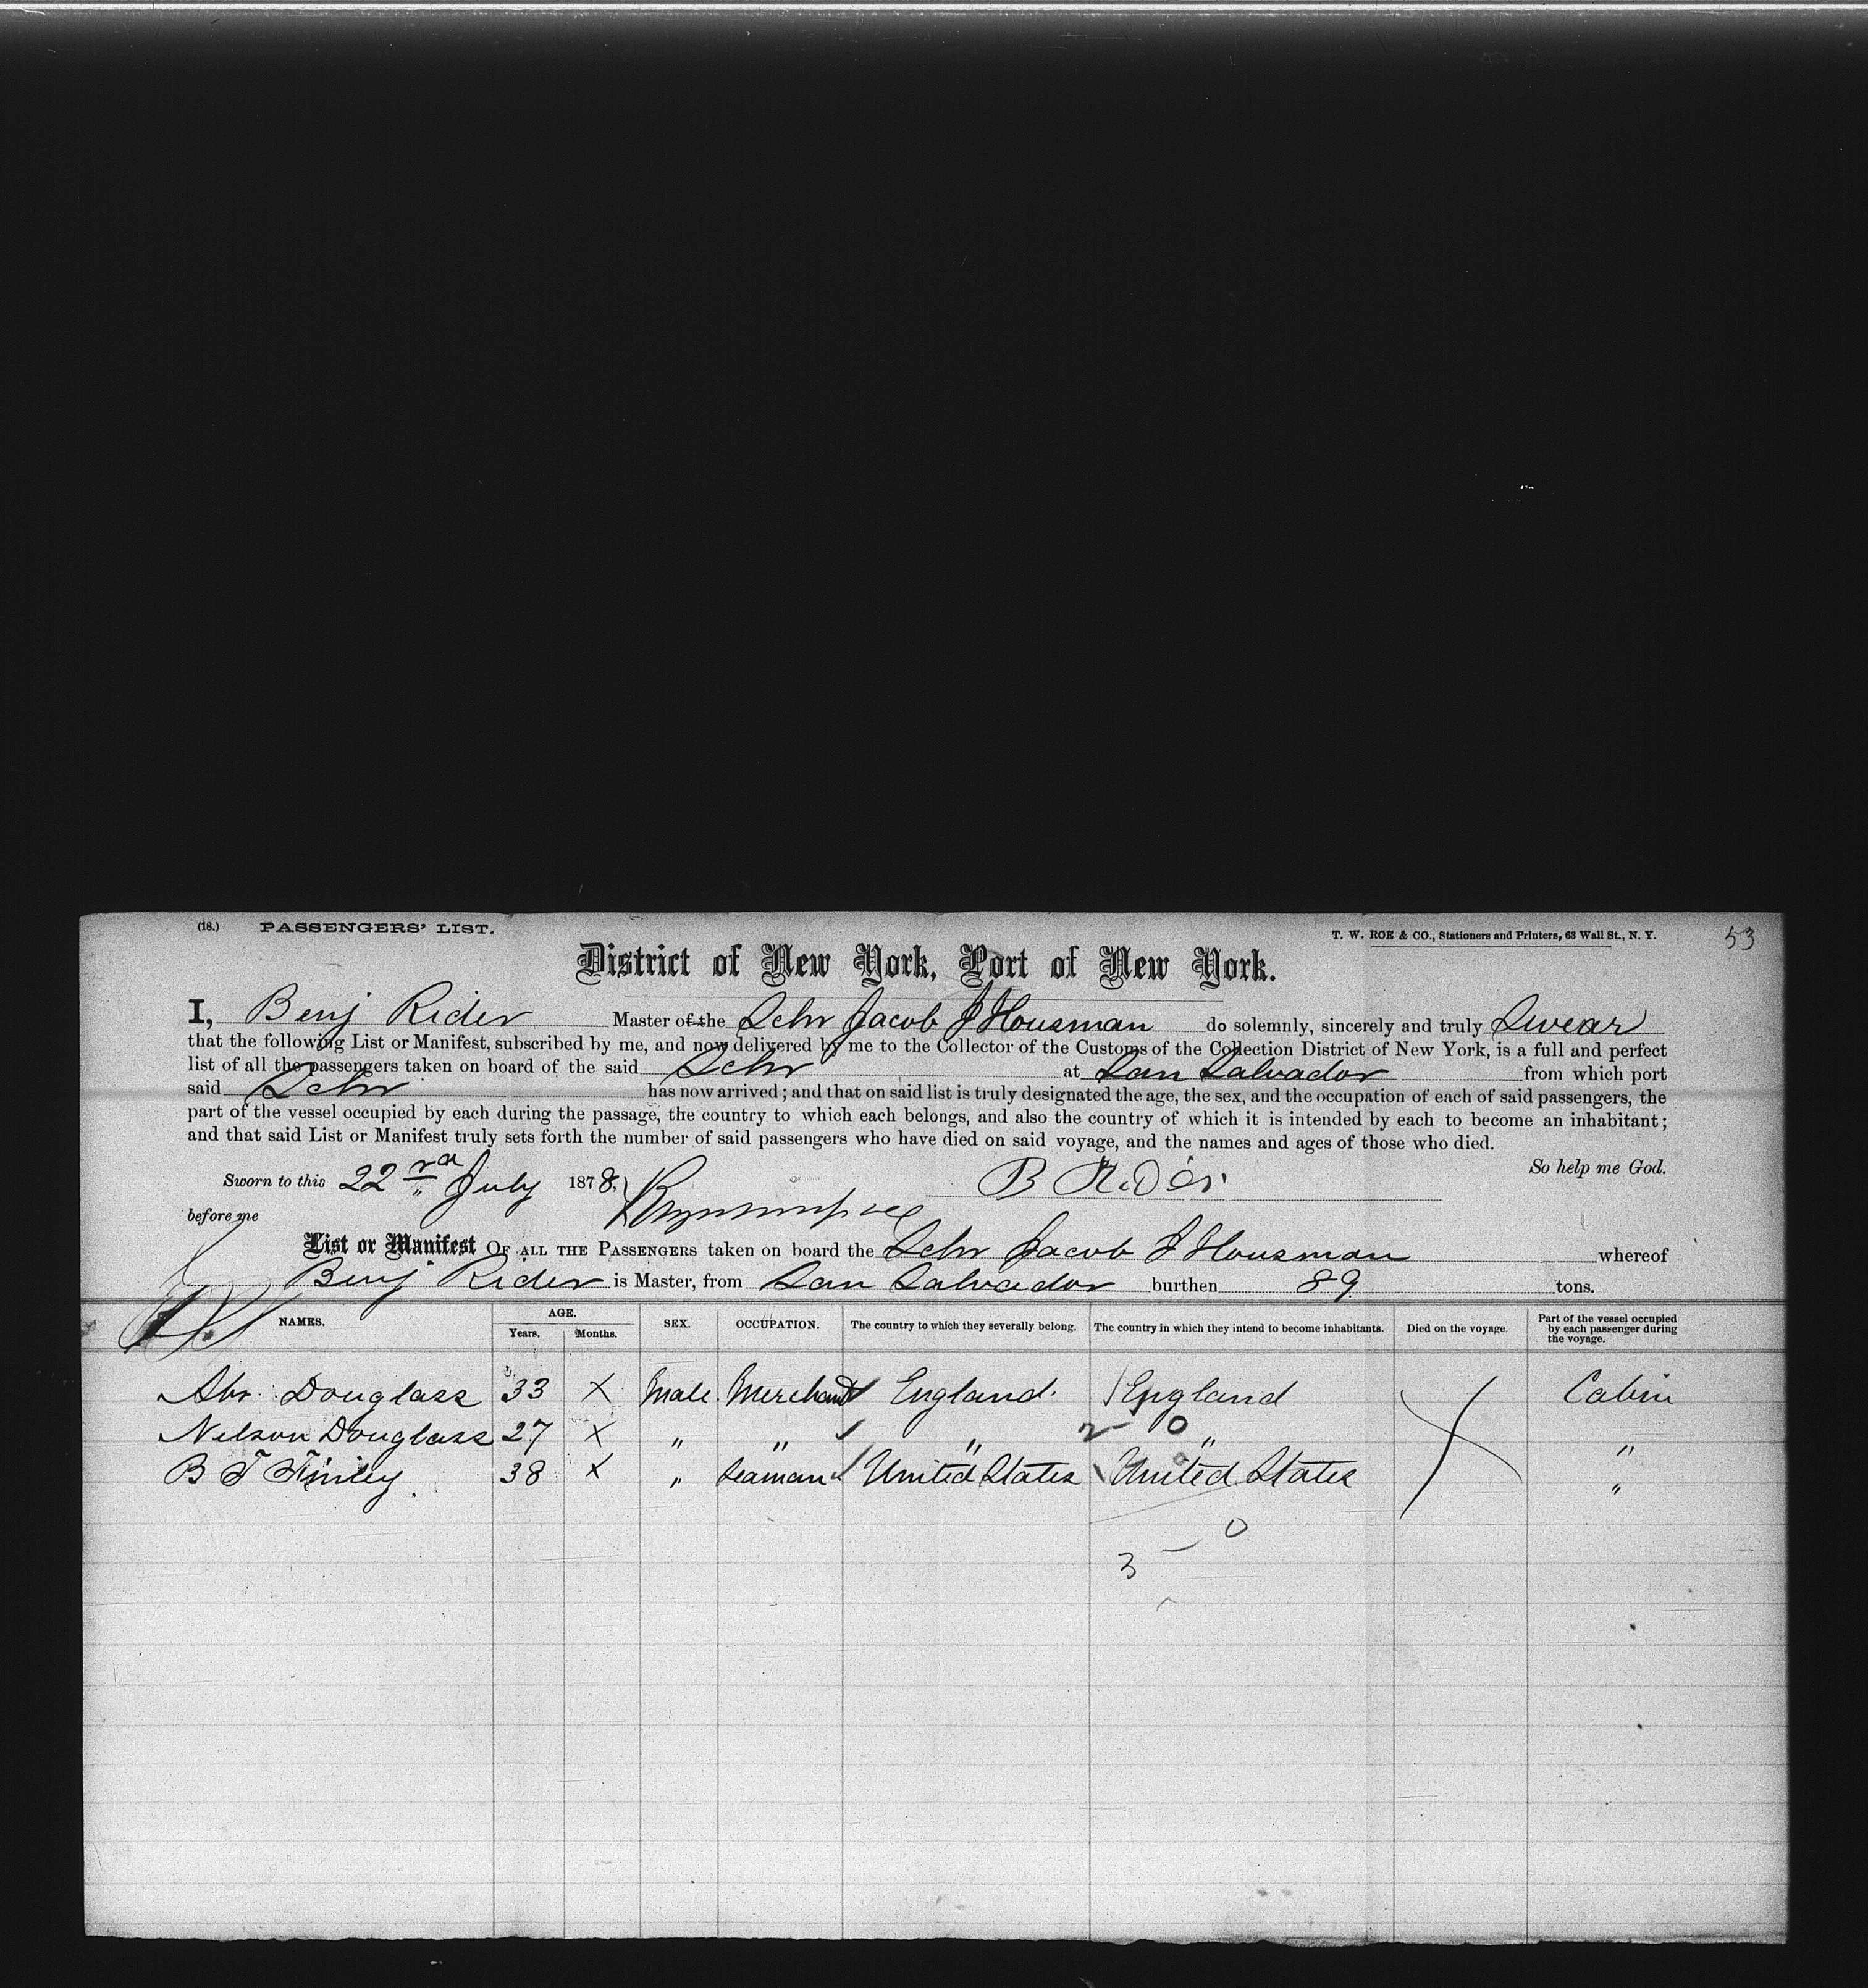 (18.) PASSENGERS' LIST. T. W. ROE & CO., Stationers and Printers, 63 Wall St., N. Y. 53
District of New York, Port of New York.
I, Benj Rider Master of the Schr Jacob J Housman do solemnly, sincerely and truly Swear
that the following List or Manifest, subscribed by me, and now delivered by me to the Collector of the Customs of the Collection District of New York, is a full and perfect
list of all the passengers taken on board of the said Schr at San Salvador from which port
said Schr has now arrived; and that on said list is truly designated the age, the sex, and the occupation of each of said passengers, the
part of the vessel occupied by each during the passage, the country to which each belongs, and also the country of which it is intended by each to become an inhabitant;
and that said List or Manifest truly sets forth the number of said passengers who have died on said voyage, and the names and ages of those who died.
So help me God.
Sworn to this 22nd July 1878, B Rider
before me
List or Manifest OF ALL THE PASSENGERS taken on board the Schr Jacob J Housman whereof
Benj Rider is Master, from San Salvador burthen 89 tons.
NAMES. AGE. Years. Months. SEX. OCCUPATION. The country to which they severally belong. The country in which they intend to become inhabitants. Died on the voyage. Part of the vessel occupied by each passenger during the voyage.
Abr. Douglass 33 X Male Merchant England England Cabin
Nelson Douglass 27 X " " " 2 - 0 " "
B T Finley 38 X " Seaman United States United States "
3 - 0